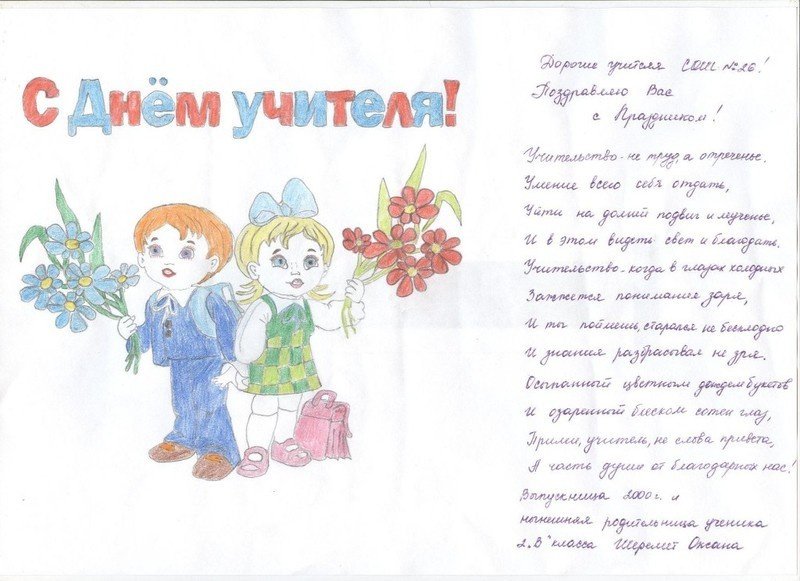 С Днём учителя!
Дорогие учителя СОШ №26!
Поздравляю Вас
с Праздником!
Учительство - не труд, а отреченье.
Умение всего себя отдать,
Уйти на долгий подвиг и мученье,
И в этом видеть свет и благодать.
Учительство - когда в глазах холодных
Зажжется понимания заря,
И ты поймешь, старался не бесплодно
И знания разбрасывал не зря.
Осыпанный цветным дождем букетов
И озаренный блеском сотен глаз,
Прими, учитель, не слова привета,
А часть души от благодарных нас!
Выпускница 2000г. и
нынешняя родительница ученика
2 "В" класса Шеремет Оксана